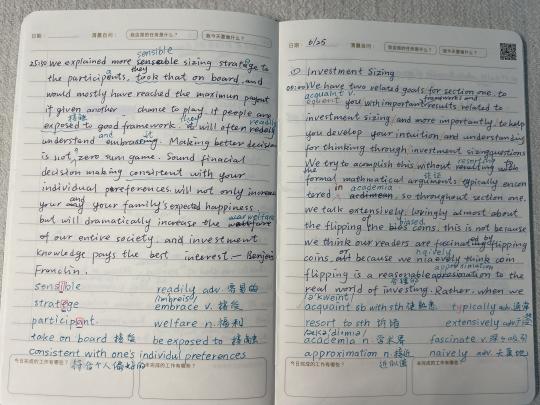 日期: 清晨自问: 我这周的任务是什么? 我今天要做什么?
sensible
25:50 We explained more sensible sizing strategy to
the participants, they took that on board, and
would mostly have reached the maximun payout
if given another chance to play. If people are
接触 they readily
exposed to good framework, it will often readily
and it
understand embracing. Making better decision
is not a zero sum game. Sound finacial
decision making consistent with your
individual pereferences will not only increase
and
your family's expected happiness
welfare
but will dramatically increase the
of our entire society. and investment
knowledge pays the best interest. — Benjamin
Franclin.
sensible readily adv. 容易地
/ɪmˈbreɪs/
strategy embrace v. 接受
participant welfare n. 福利
take on board 接受 be exposed to 接触
consistent with one's individul preferences
今日完成的工作有哪些? 符合个人偏好的 未完成的工作有哪些?
日期: 6/25 清晨自问: 我这周的任务是什么? 我今天要做什么?
① Investment Sizing
We have two related goals for section one. to
acquaint v. frameworks and
you with important results related to
investment sizing, and more importantly, to help
you develop your intuition and understanding
for thinking through investment sizing questions
resorting to
We try to acomplish this without
the 论证
formal mathematical arguments typically encon
in academia
tered, so throughout section one,
we talk extensively, boringly almost about
biased
the flipping the coins, this is not because
we think our readers are fascinating flipping
or naively
coins, because we think coin
approximation
flipping is a reasonable to the
合理的
real world of investing. Rather, when we
/əˈkweint/
acquaint sb with sth 使熟悉 typically adv. 通常
resort to sth 诉诸 extensively adv. 广泛
academia n. 学术界 fascinate v. 深深吸引
approximation n. 接近 naively adv. 天真地
今日完成的工作有哪些? 近似值 未完成的工作有哪些?